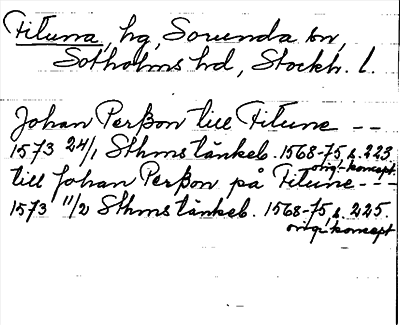 Fituna, hg, Sorunda sn,
Sotholms hd, Stockh. l.
Johan Perßon till Fitune - -
1573 24/1 Sthms tänkeb. 1568-75, s. 223.
orig.-koncept.
till Johan Perßon på Fitune - - -
1573 11/2 Sthms tänkeb. 1568-75, s. 225.
orig.-koncept.